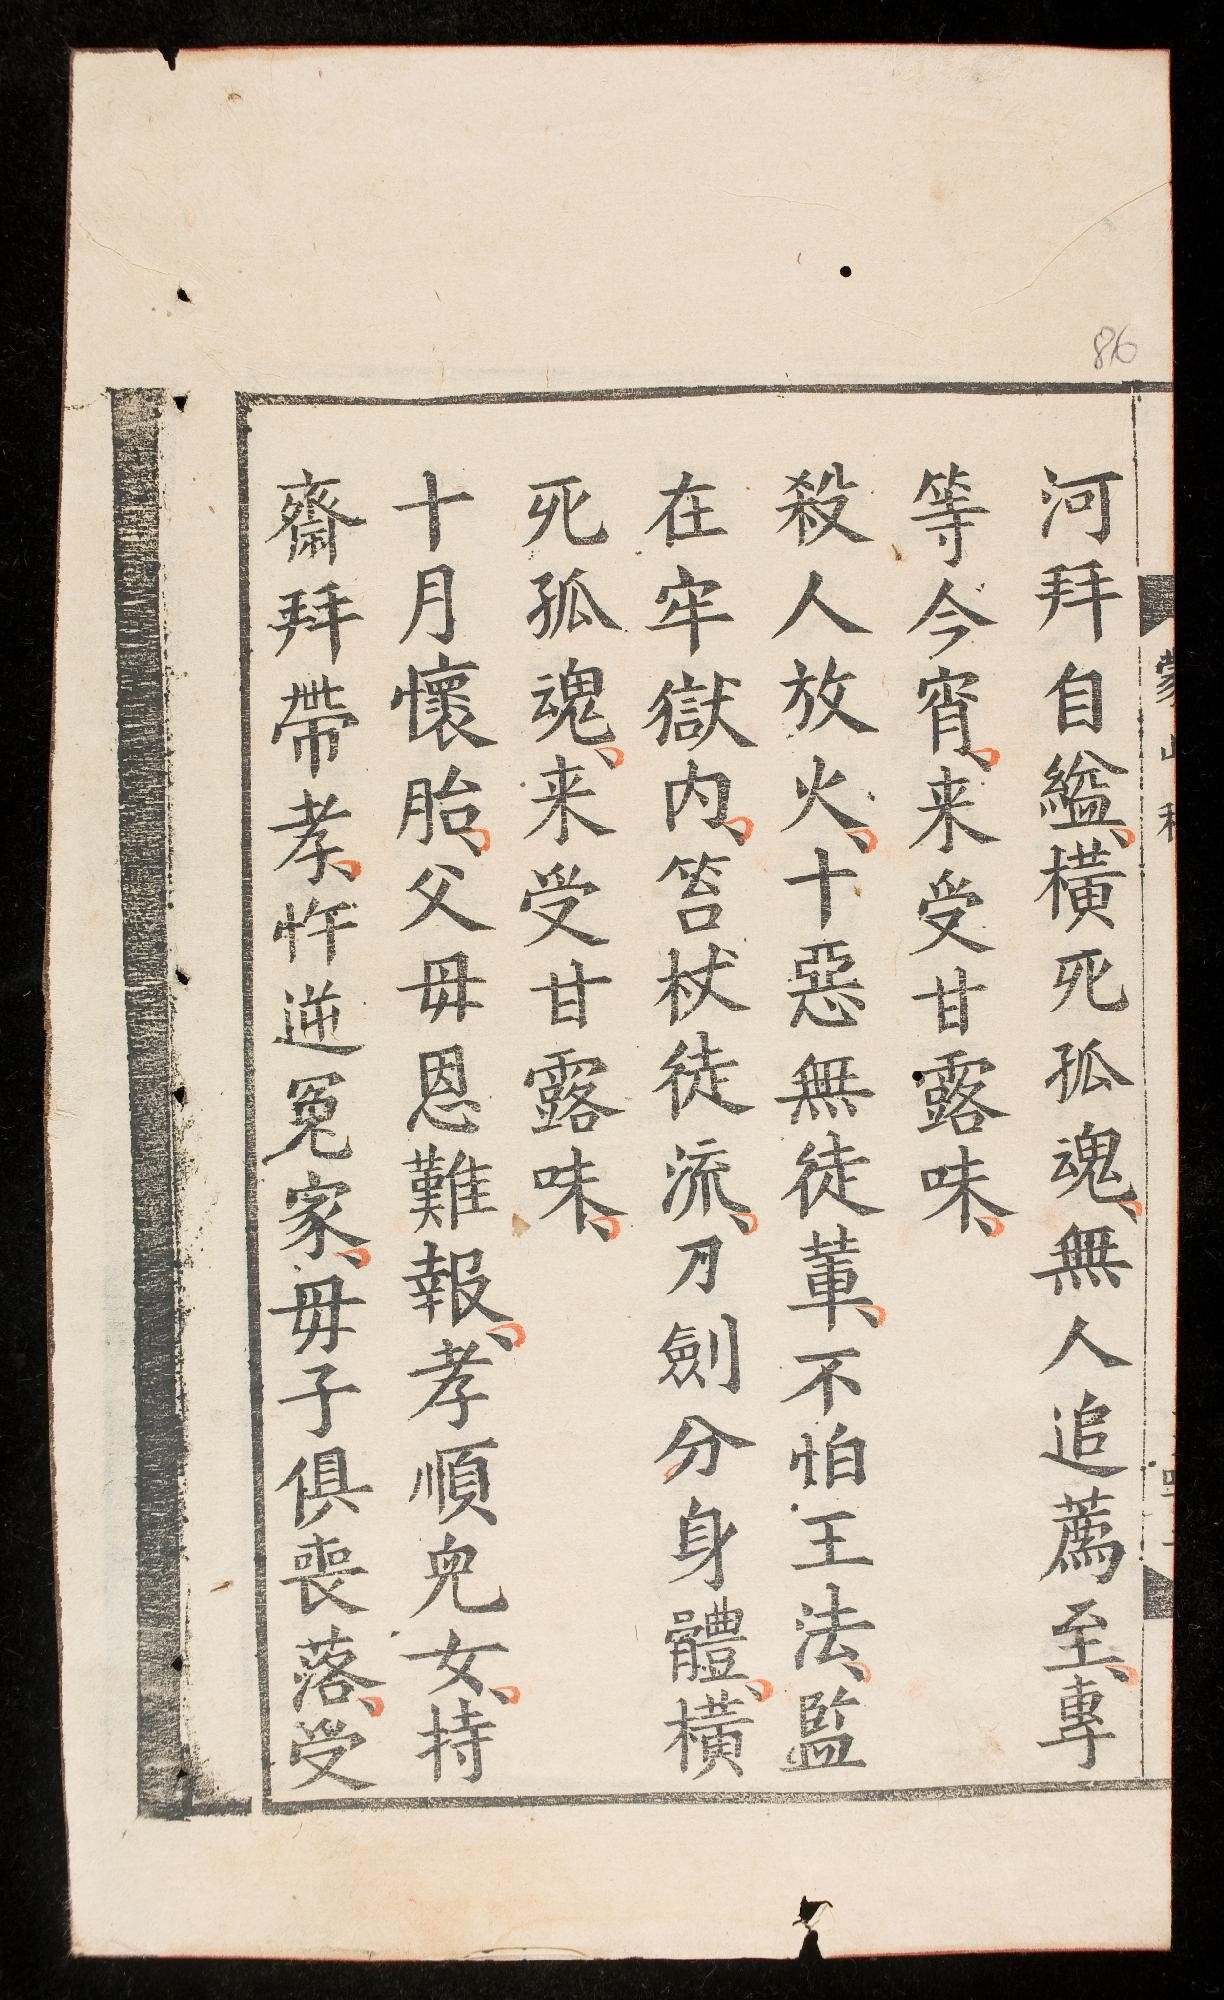 86
河拜自縊、橫死孤魂、無人追薦至、專
等今宵、来受甘露味、
殺人放火、十惡無徒軰、不怕王法、監
在牢獄内、笞杖徒流、刀劍分身體、橫
死孤魂、来受甘露味、
十月懷胎、父毋恩難報、孝順兒女、持
齋拜帶孝、忤逆冤家、毋子俱丧落、受